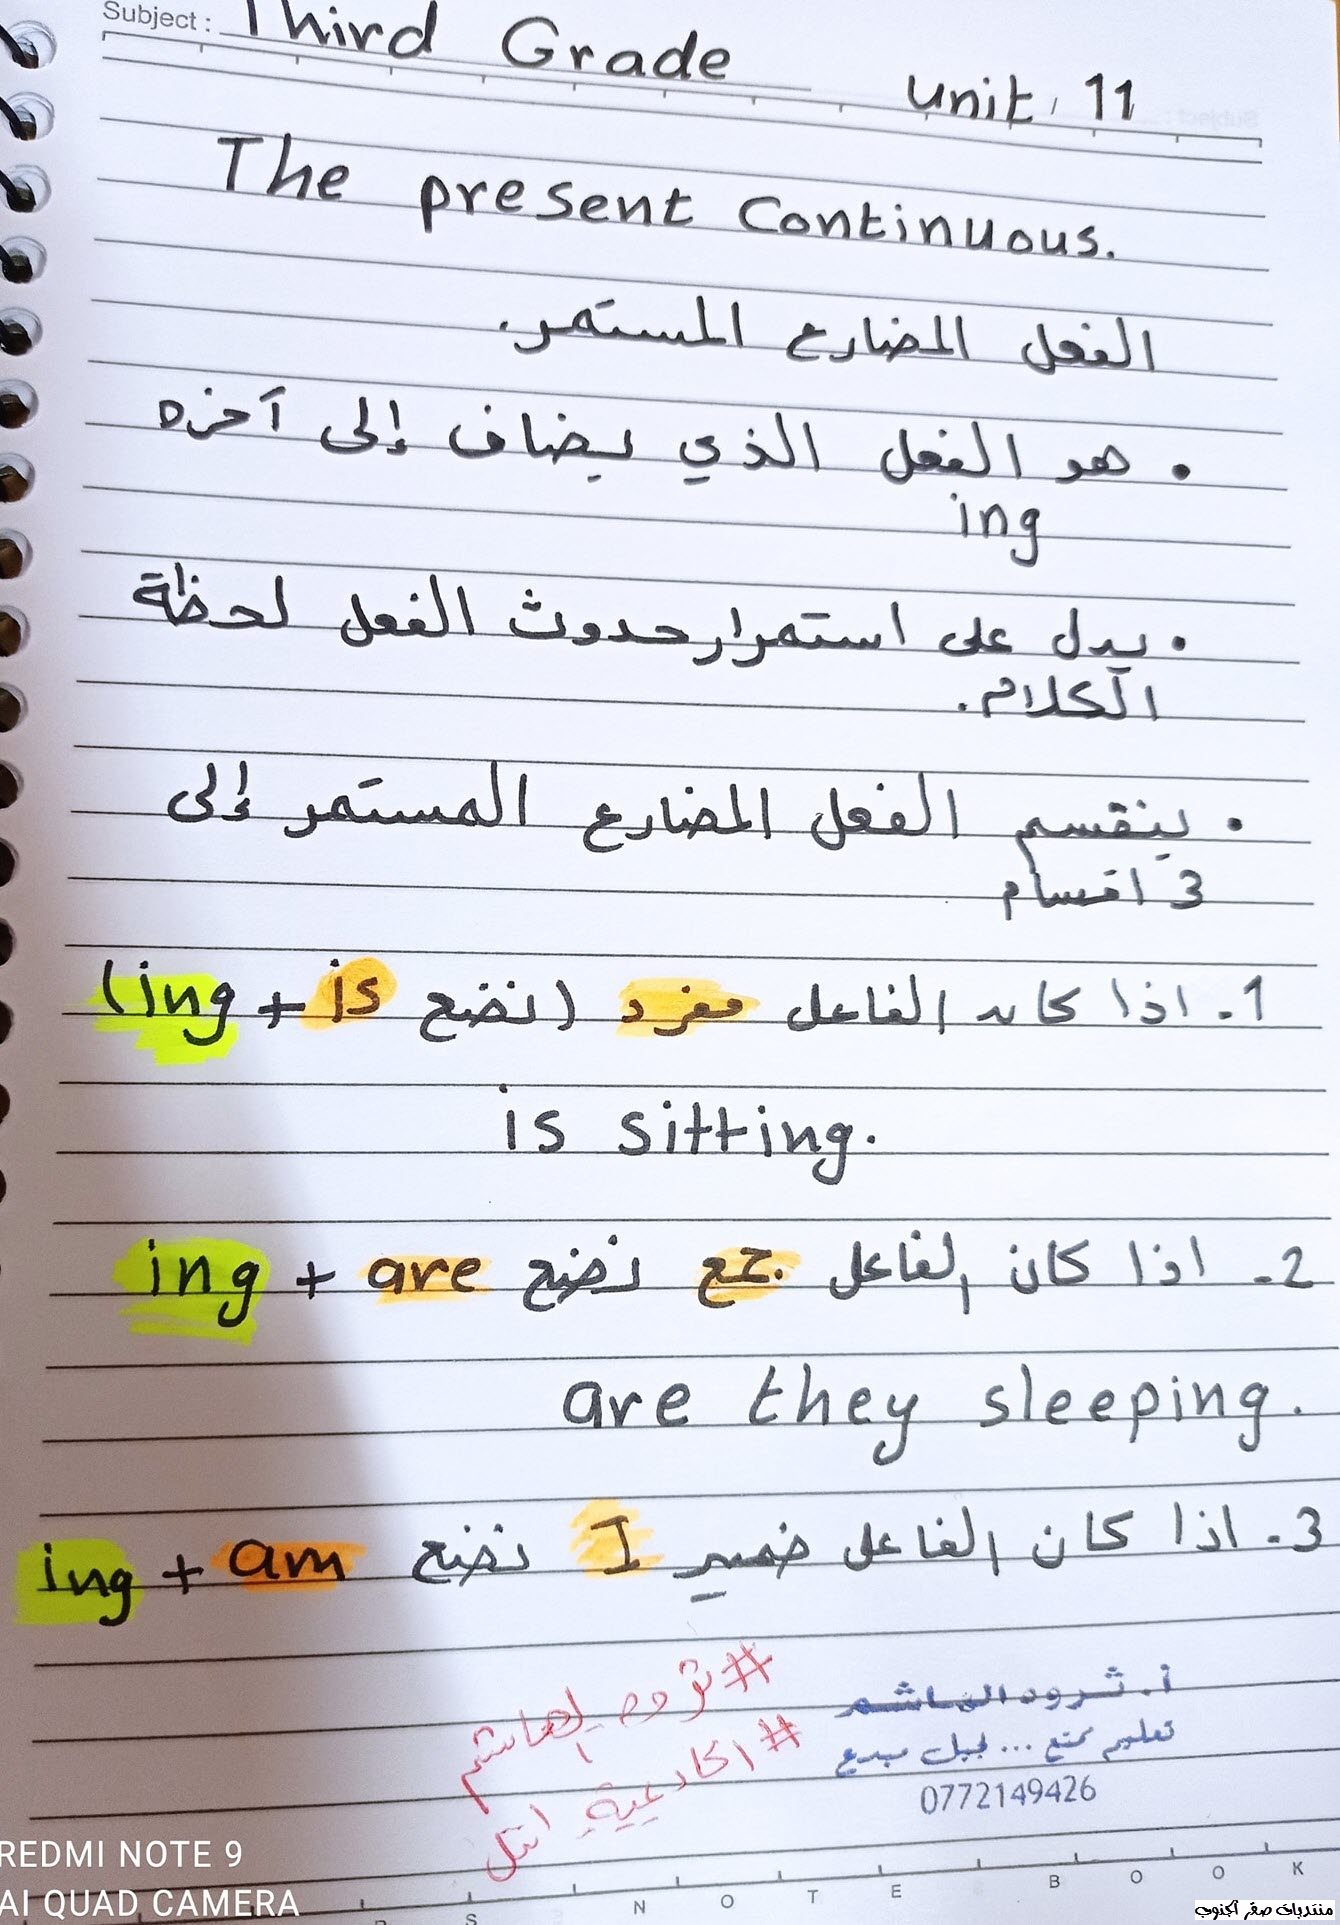 Subject : Third Grade
unit 11
The present Continuous.
الفعل المضارع المستمر.
• هو الفعل الذي يضاف إلى آخره
ing
• يدل على استمرار حدوث الفعل لحظة
الكلام.
• ينقسم الفعل المضارع المستمر إلى
3 اقسام
1. اذا كان الفاعل مفرد (نضع is + ing)
is sitting.
2- اذا كان الفاعل جمع نضع are + ing
are they sleeping.
3- اذا كان الفاعل ضمير I نضع am + ing
أ. ثرود الهاشم
#ثرود الهاشم
تعليم ممتع ... لجيل مبدع
#اكاديمية انتل
0772149426
REDMI NOTE 9
AI QUAD CAMERA
NOTE BOOK
منتديات صقر الجنوب